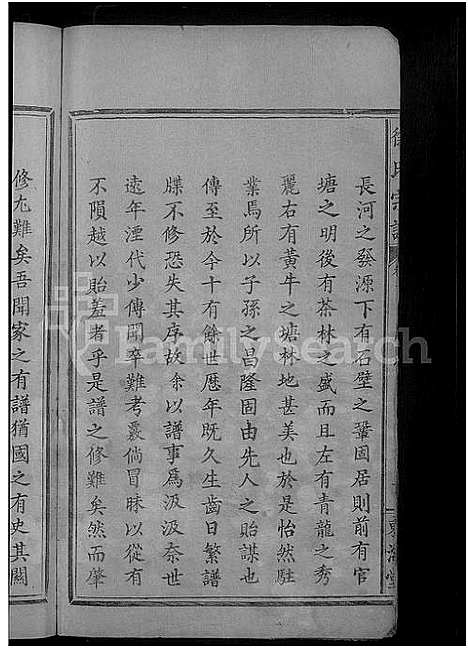 徐氏宗譜
東海堂
長河之發源下有石壁之鞏固居則前有官
塘之明後有茶林之盛而且左有青龍之秀
麗右有黃牛之塘林地甚美也於是怡然駐
業焉所以子孫之昌隆固由先人之貽謀也
傳至於今十有餘世歷年既久生齒日繁譜
牒不修恐失其序故余以譜事為汲汲奈世
遠年湮代少傳聞卒難考覈倘冒昧以從有
不隕越以貽羞者乎是譜之修難矣然而肇
修尤難矣吾聞家之有譜猶國之有史其闕
FamilySearch